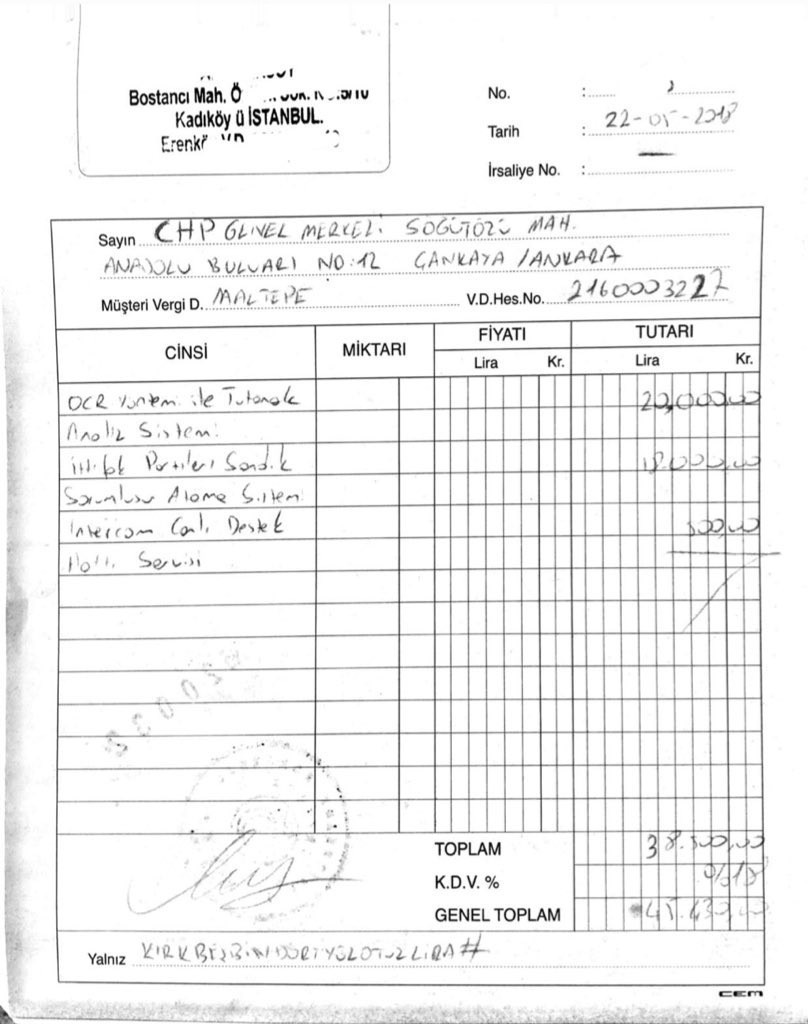 Bostancı Mah. Ö
Kadıköy ü İSTANBUL.
Erenk
No. : 2
Tarih : 22-05-2018
İrsaliye No. : —
Sayın CHP GENEL MERKEZİ SÖĞÜTÖZÜ MAH.
ANADOLU BULVARI NO:12 ÇANKAYA /ANKARA
Müşteri Vergi D. MALTEPE V.D.Hes.No. 2160003227
CİNSİ MİKTARI FİYATI TUTARI
Lira Kr. Lira Kr.
OCR Yöntemi ile Tutanak 20,000,00
Analiz Sistemi
İttifak Partileri Sandık 18.000,00
Sorumlusu Atama Sistemi
Intercom Canlı Destek 500,00
Hattı Servisi
TOPLAM 38.500,00
K.D.V. % %18
GENEL TOPLAM 45.430,00
Yalnız KIRKBEŞBİNDÖRTYÜZOTUZLİRA#
CEM